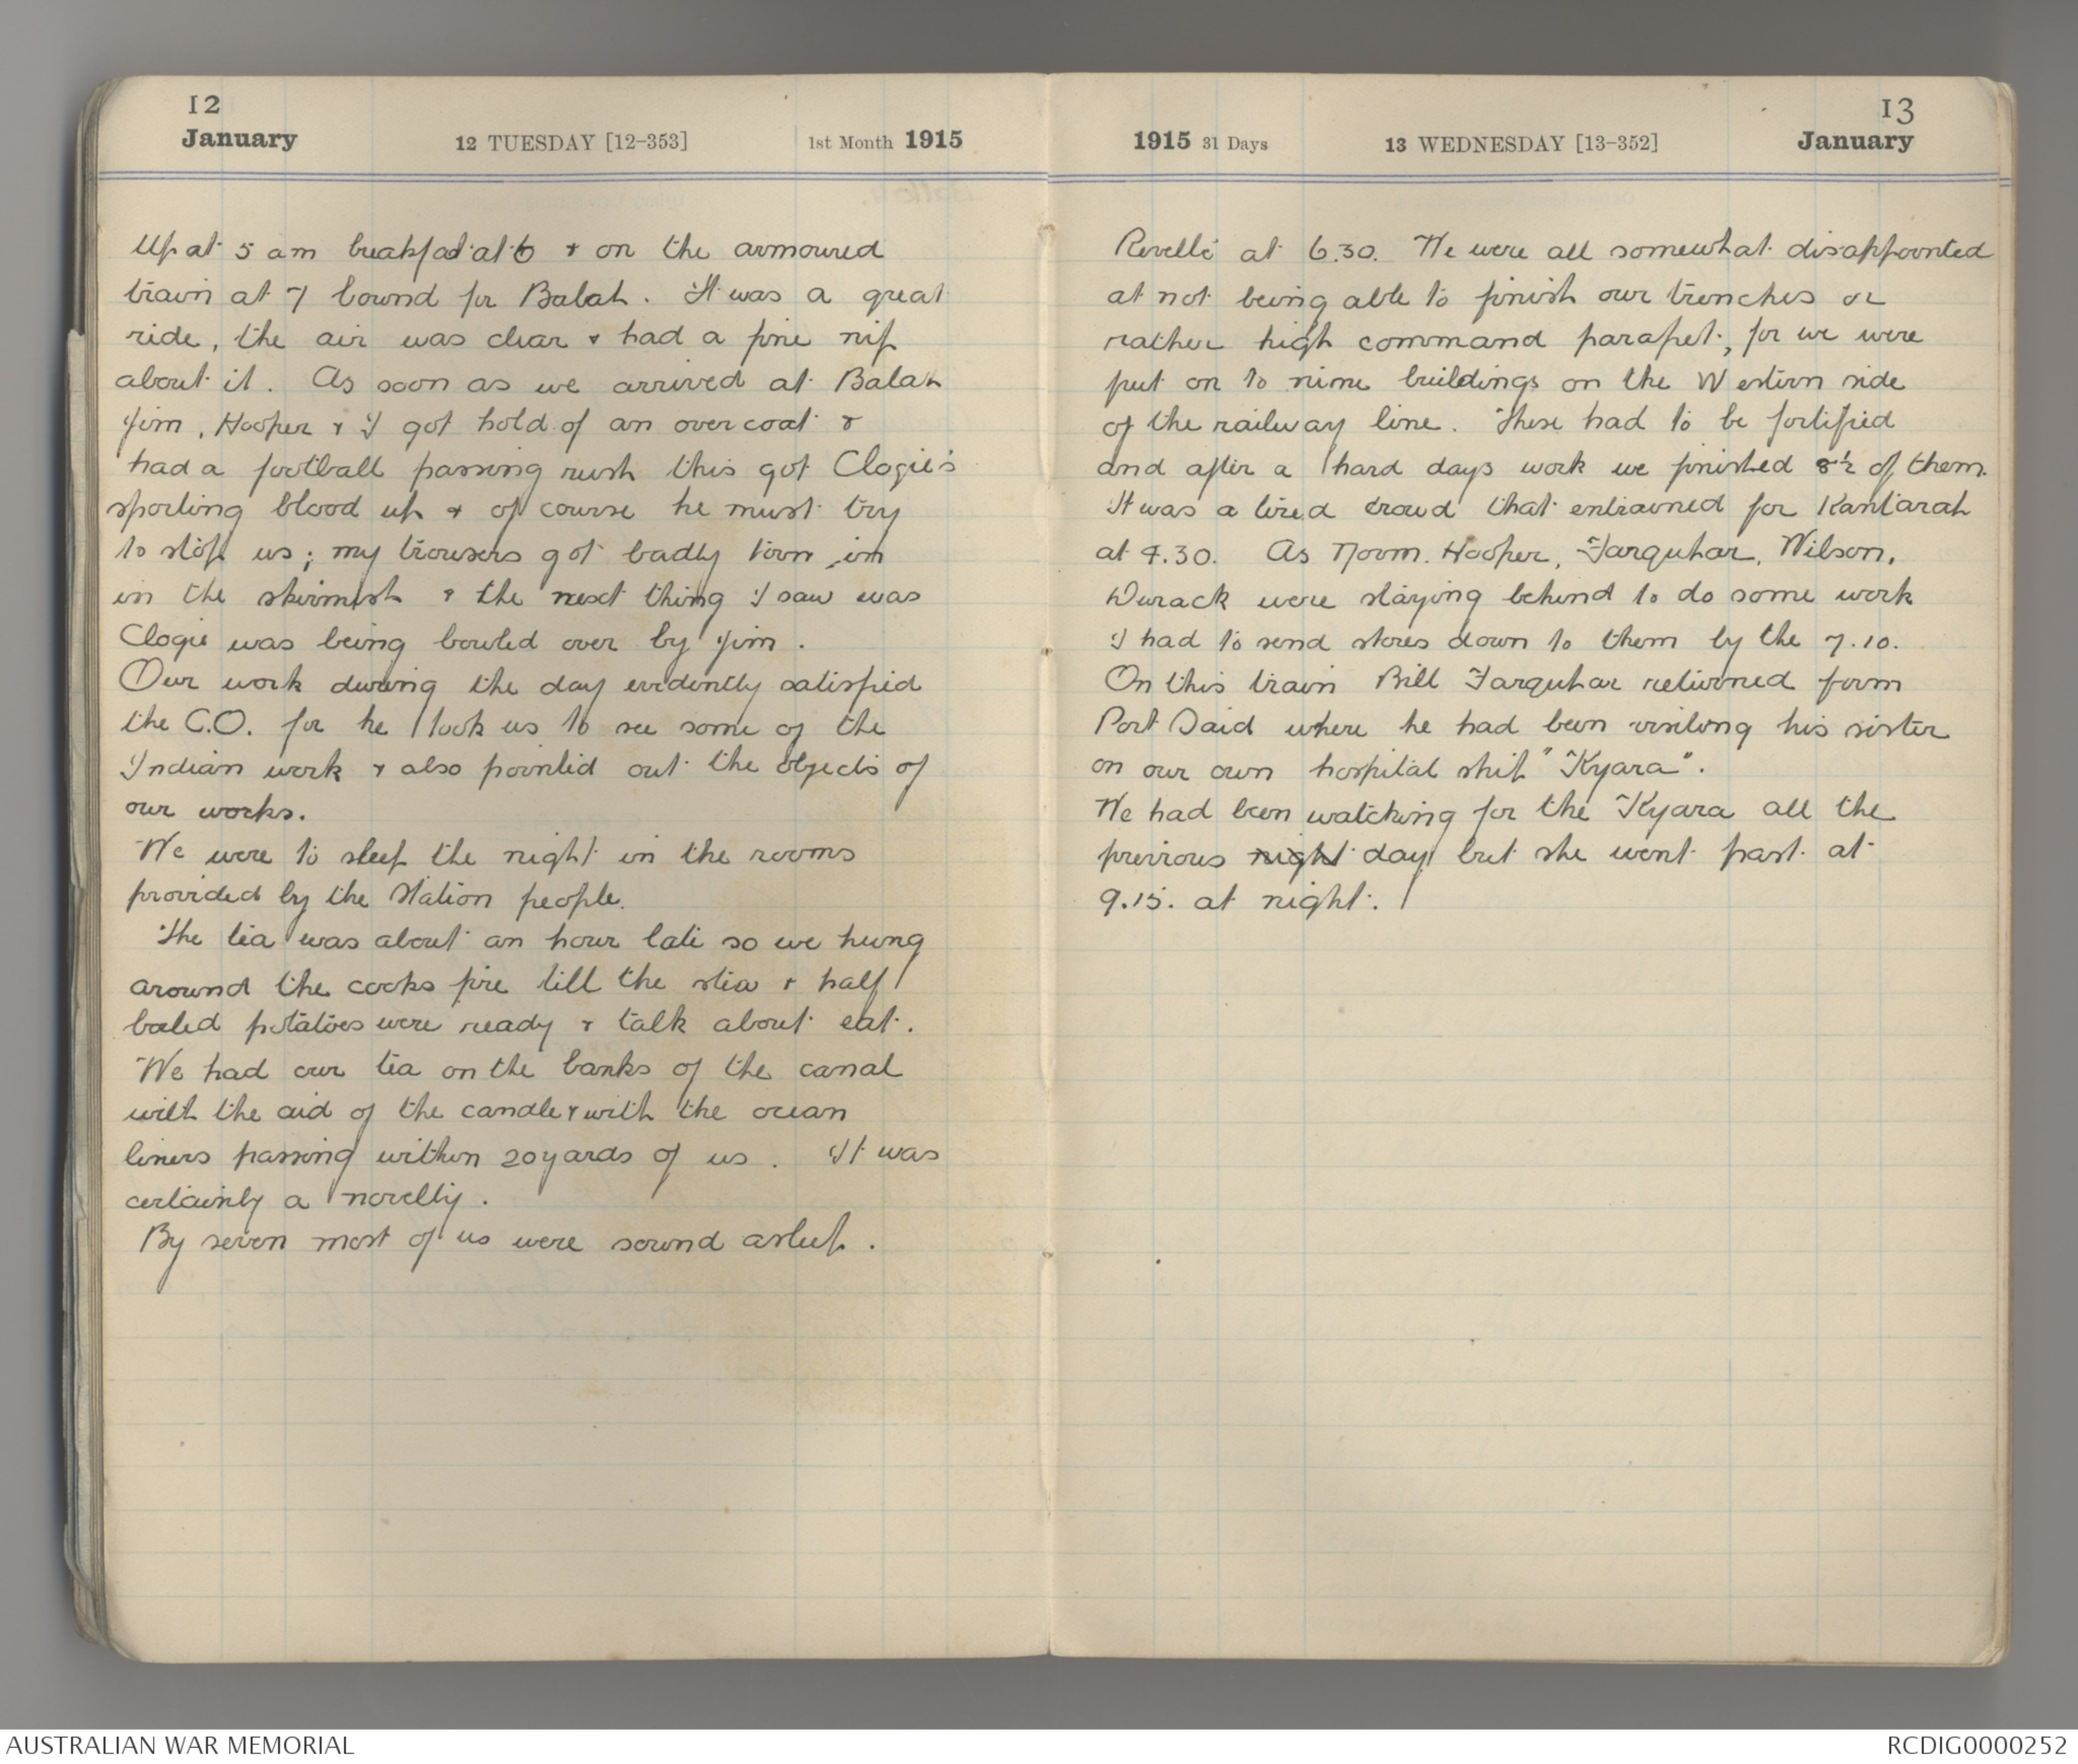 12
January 12 TUESDAY [12-353] 1st Month 1915
Up at 5 am breakfast at 6 & on the armoured
train at 7 bound for Balah. It was a great
ride, the air was clear & had a fine nip
about it. As soon as we arrived at Balah
Jim, Hooper & I got hold of an overcoat &
had a football passing rush this got Clogie's
sporting blood up & of course he must try
to stop us; my trousers got badly torn in
in the skirmish & the next thing I saw was
Clogie was being bowled over by Jim.
Our work during the day evidently satisfied
the C.O. for he took us to see some of the
Indian work & also pointed out the objects of
our works.
We were to sleep the night in the rooms
provided by the Station people.
The tea was about an hour late so we hung
around the cooks fire till the stew & half
boiled potatoes were ready & talk about eat.
We had our tea on the banks of the canal
with the aid of the candle & with the ocean
liners passing within 20 yards of us. It was
certainly a novelty.
By seven most of us were sound asleep.
13
1915 31 Days 13 WEDNESDAY [13-352] January
Revellé at 6.30. We were all somewhat disappointed
at not being able to finish our trenches or
rather high command parapet, for we were
put on to nine buildings on the Western side
of the railway line. These had to be fortified
and after a hard days work we finished 8½ of them.
It was a tired crowd that entrained for Kantarah
at 4.30. As Norm. Hooper, Farquhar, Wilson,
Durack were staying behind to do some work
I had to send stores down to them by the 7.10.
On this train Bill Farquhar returned from
Port Said where he had been visiting his sister
on our own hospital ship "Kyara".
We had been watching for the Kyara all the
previous night day but she went past at
9.15. at night.
AUSTRALIAN WAR MEMORIAL
RCDIG0000252